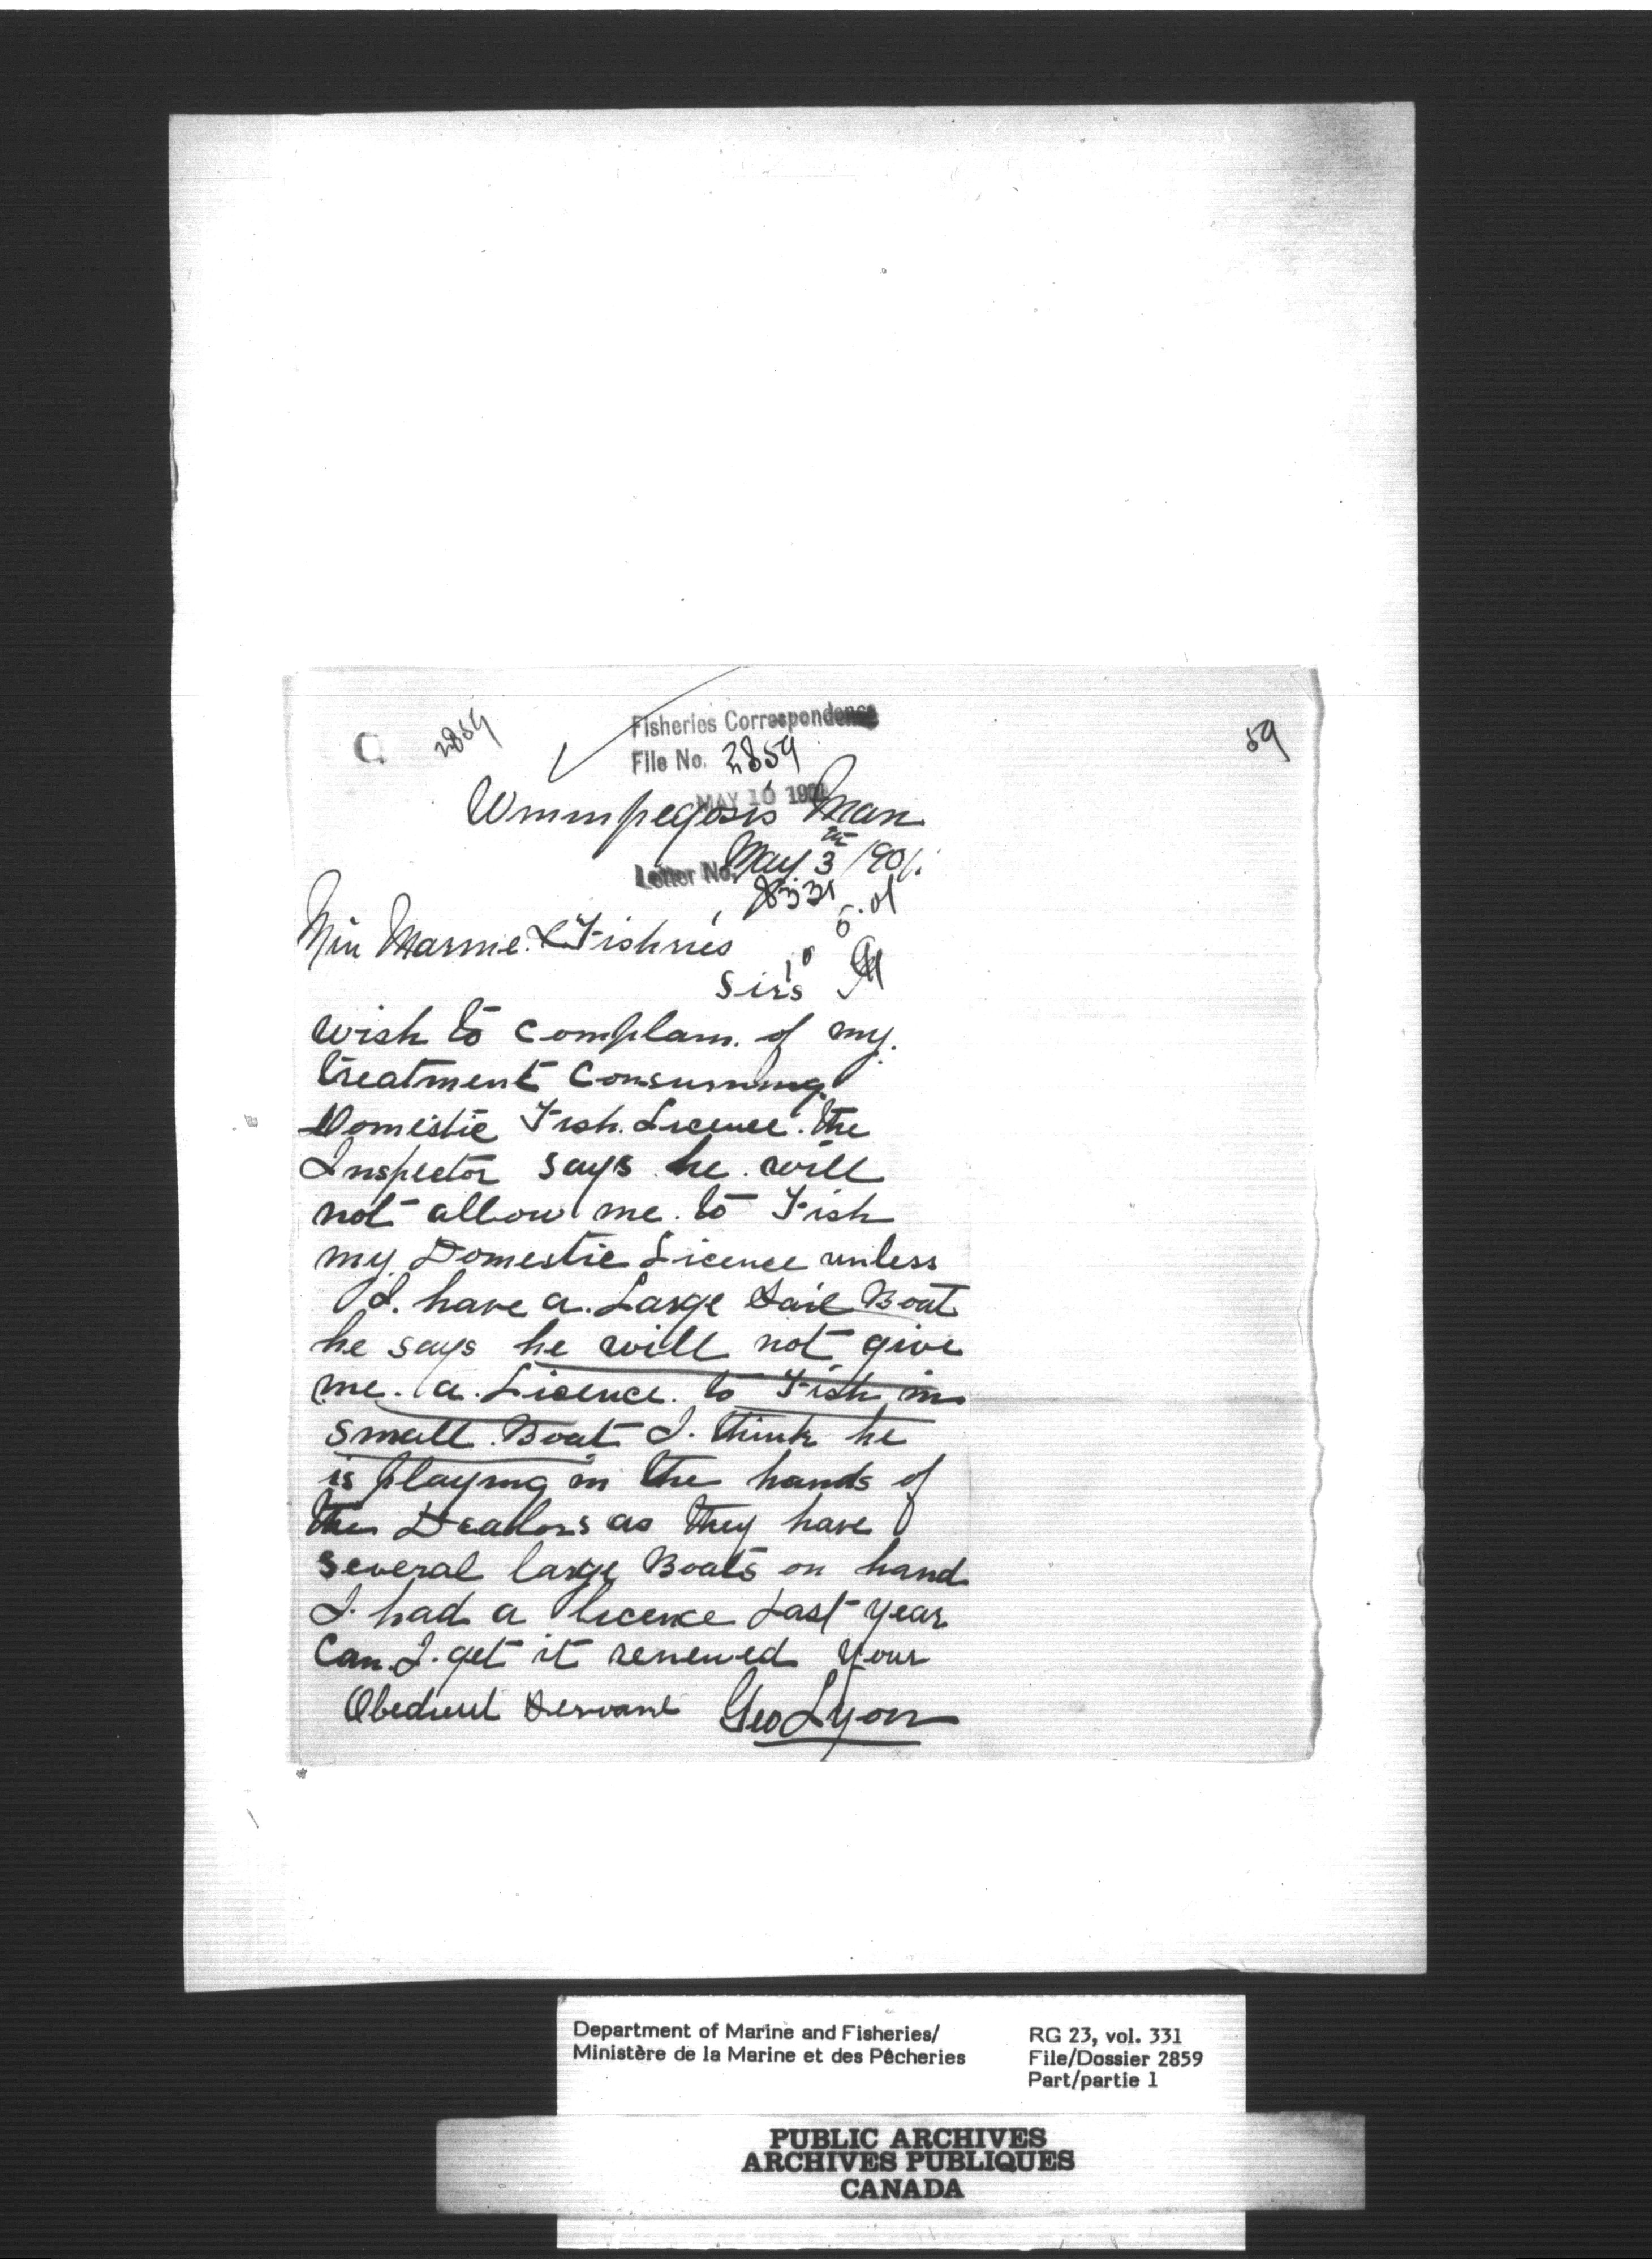 2859
Fisheries Correspondence
File No. 2859
59
MAY 10 1901
Winnipegosis Man
May 3th /901.
Letter No.
Min Marine & Fishries
Sirs
wish to Complain. of my.
treatment Consurning.
Domestic Fish. Licence. the
Inspector says he. will
not allow me. to Fish
my Domestic Licence unless
I. have a. Large Sail Boat
he says he will not give
me. a. Licence. to Fish in
small. Boat I. think he
is playing in the hands of
the Dealors as they have
several large Boats on hand
I. had a licence Last year
Can. I. get it renewed your
Obedient Servant Geo Lyon
Department of Marine and Fisheries/
Ministère de la Marine et des Pêcheries
RG 23, vol. 331
File/Dossier 2859
Part/partie 1
PUBLIC ARCHIVES
ARCHIVES PUBLIQUES
CANADA